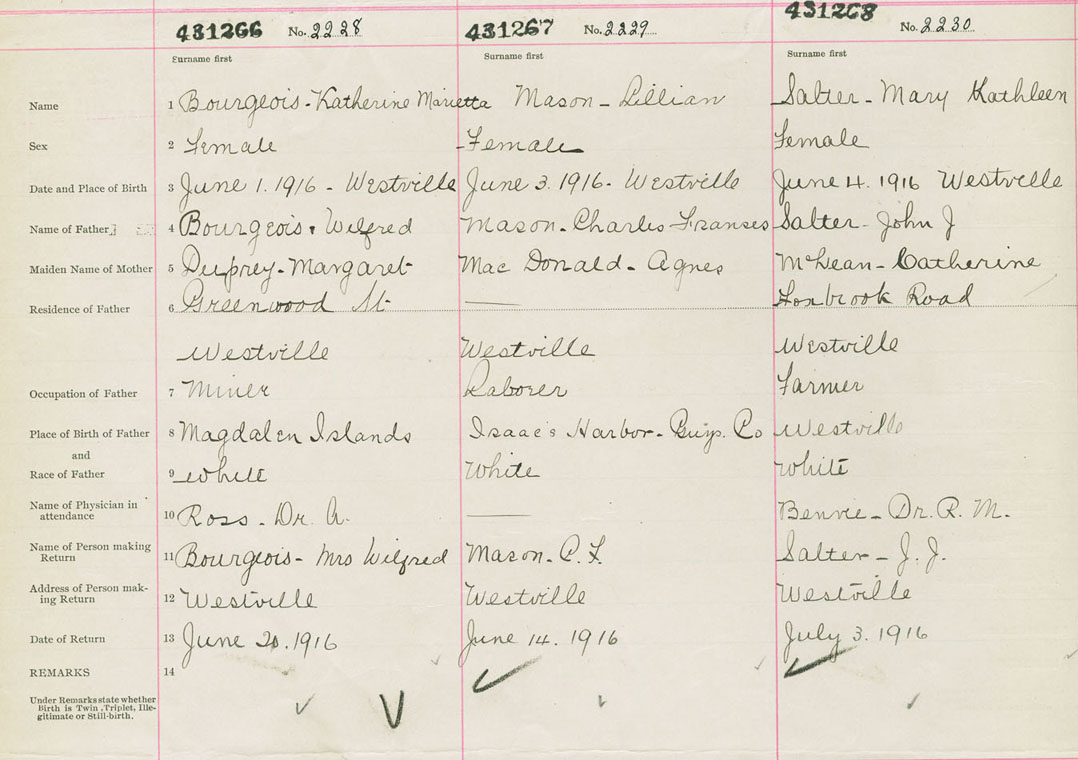 431266 No. 2228 431267 No. 2229 431268 No. 2230
Surname first Surname first Surname first
Name 1 Bourgeois - Katherine Marietta Mason - Lillian Salter - Mary Kathleen
Sex 2 Female Female Female
Date and Place of Birth 3 June 1. 1916 - Westville June 3. 1916 - Westville June 4. 1916 Westville
Name of Father 4 Bourgeois - Wilfred Mason - Charles Franses Salter - John J
Maiden Name of Mother 5 Duprey - Margaret Mac Donald - Agnes McLean - Catherine
Residence of Father 6 Greenwood St Foxbrook Road
Westville Westville Westville
Occupation of Father 7 Miner Laborer Farmer
Place of Birth of Father 8 Magdalen Islands Isaac's Harbor - Guys. Co Westville
and
Race of Father 9 White White White
Name of Physician in
attendance 10 Ross - Dr. A. Benvie - Dr. R. M.
Name of Person making
Return 11 Bourgeois - Mrs Wilfred Mason - C. F. Salter - J. J.
Address of Person mak-
ing Return 12 Westville Westville Westville
Date of Return 13 June 20. 1916 June 14. 1916 July 3. 1916
REMARKS 14
Under Remarks state whether
Birth is Twin, Triplet, Ille-
gitimate or Still-birth.